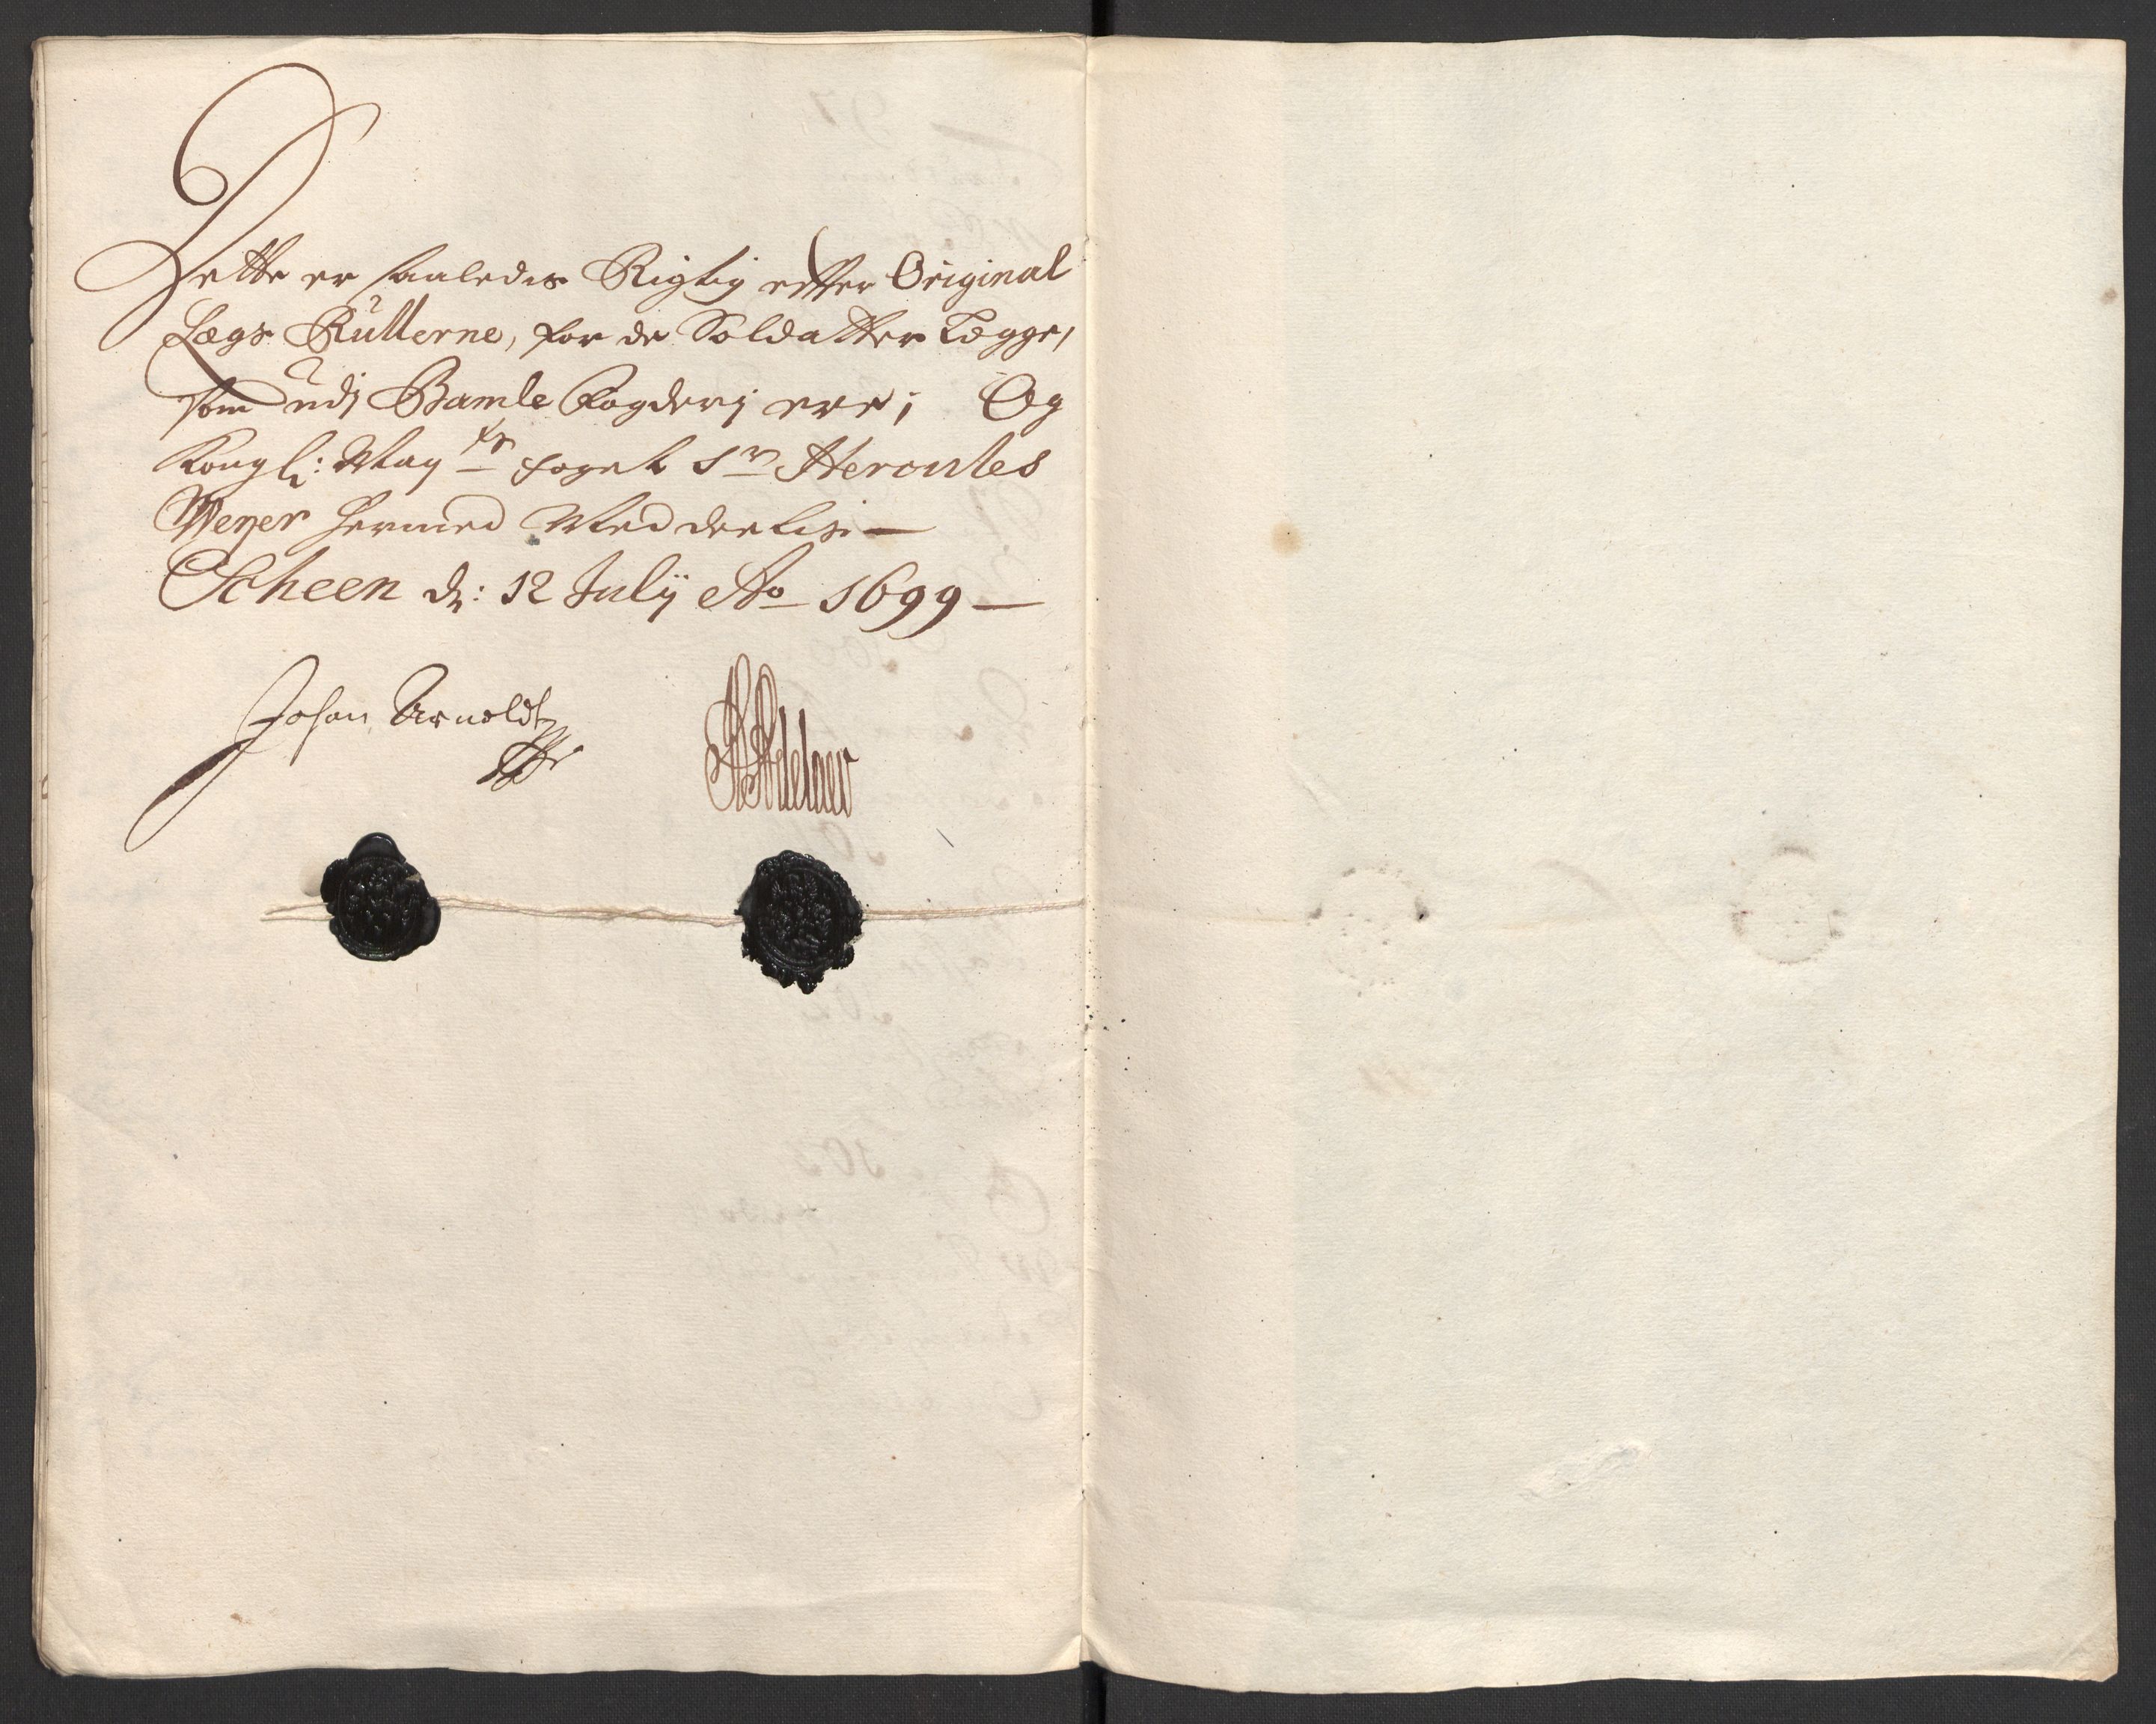 Dette er saaledis Rigtig effter Original
Lægs Rullerne, for de Soldatter Lægge,
som udj Bamle Fogderj ere; Og
Kongl: May ts foget Sr Hercules
Weyer hermed Meddeelis —
Scheen d: 12 Julij Ao 1699 —
Johan Arnoldt
Adelaer